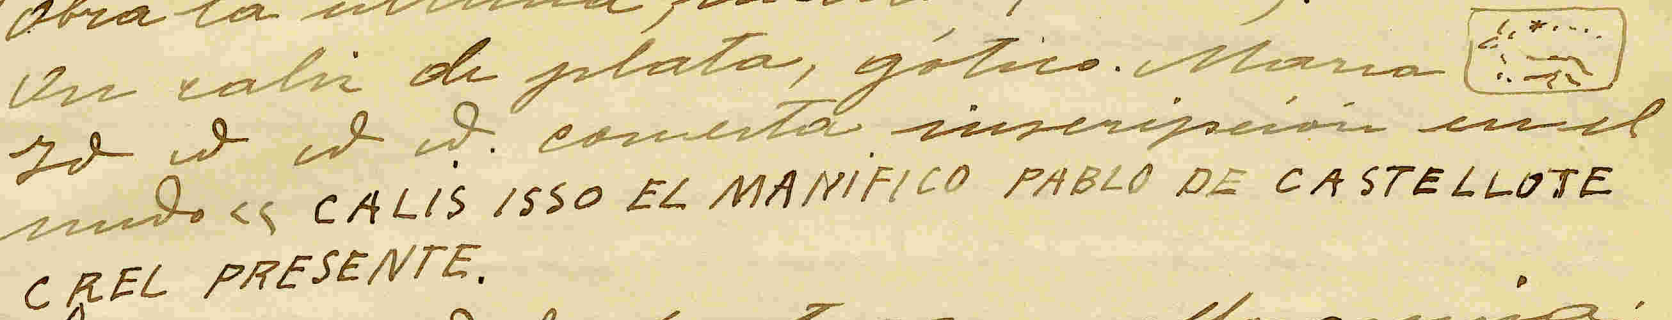 obra la ultima
Un caliz de plata, gótico. Marca
Id id id id. con esta inscripción en el
nudo << CALIS ISSO EL MANIFICO PABLO DE CASTELLOTE
CREL PRESENTE.